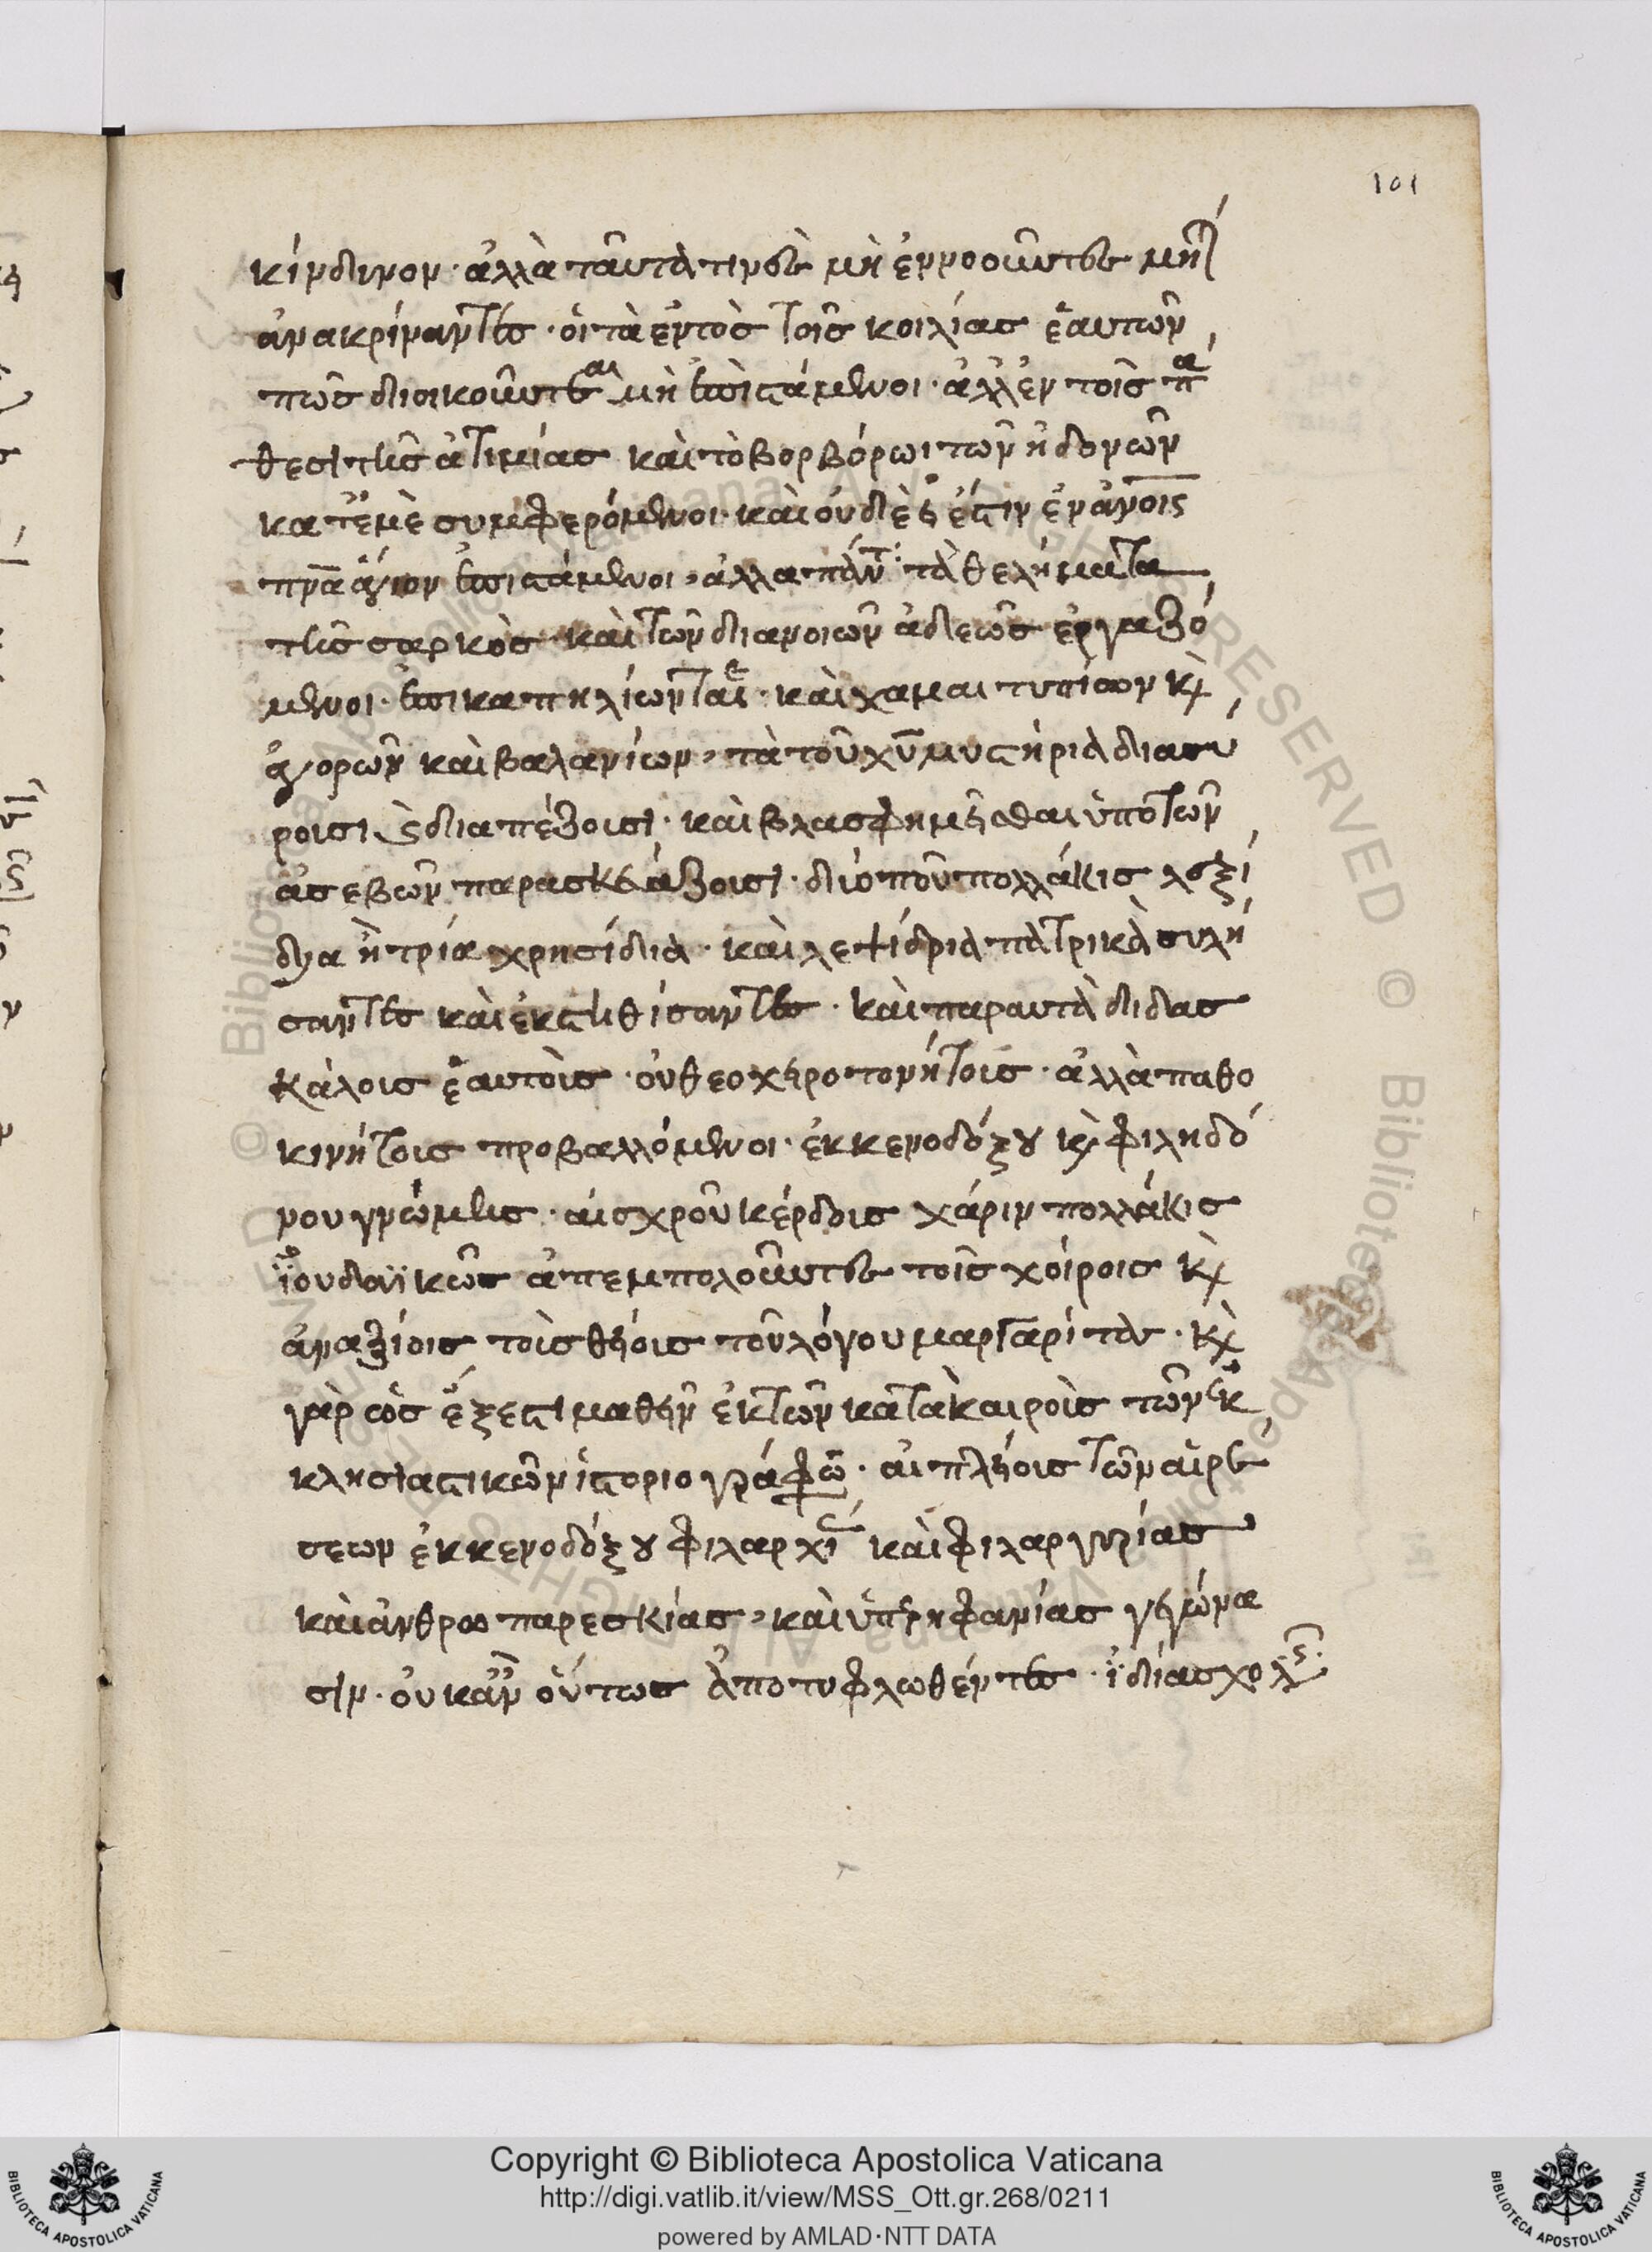 101
κίνδυνον· ἀλλὰ ταῦτά τινες μὴ ἐννοοῦντες μηδ
ἀνακρίναντες· οἱ τὰ ἐντὸς τοῖς κοιλίας ἑαυτῶν
πῶς διοικοῦνται μὴ ἐπιστάμενοι· ἀλλ' ἐν τοῖς πά
θεσι τῆς ἀτιμίας καὶ τὸ βορβόρωι τῶν ἡδονῶν
κατ' ἐμὲ συμφερόμενοι· καὶ οὐδὲ εἰ ἔστιν ἐν ἀνοις
πνα ἅγιον ἐπιστάμενοι, ἀλλα πάντ τὰ θελήματα
τῆς σαρκὸς καὶ τῶν διανοιῶν ἀδεῶς ἐργαζό
μενοι· ἐπι καπηλίων τε· καὶ χαμαιτυπίαον κὶ
ἀγορῶν καὶ βαλανίων, τὰ τοῦ χυ μυστήρια διασύ
ρουσι κὶ διαπέζουσι· καὶ βλασφημεῖσθαι ὑπὸ τῶν
ἀσεβῶν παρασκεάζουσι· δύο που πολλάκις λεξί
δια ἢ τρία χρησίδια· καὶ λεψίδρια πατρικὰ συλή
σαντες καὶ ἐκστηθίσαντες· καὶ παραυτὰ διδας
κάλοις ἑαυτοὶς· οὐ θεοχειροτονήτοις· ἀλλὰ παθο
κινήτοις προβαλλόμενοι· ἐκ κενοδόξου κὶ φιληδό
νου γνώμης· αἰσχροῦ κέρδοις χάριν πολλάκις
ἰουδαϊκῶς ἀπεμπολοῦντες τοῖς χοίροις κὶ
ἀναξίοις τοὶς θείοις τοῦ λόγου μαργαρίτας· κὶ
γὰρ ὡς ἔξεστι μαθεῖν ἐκ τῶν κατὰ καιροὶς τῶν ἐκ
κλησιαστικῶν ἱστοριογράφω· αἱ πλείοις τῶν αἱρέ
σεων ἐκ κενοδόξου φιλαρχί καὶ φιλαργυρίας
καὶ ἀνθρωπαρεσκίας, καὶ ὑπερηφανίας γεγόνα
σιν· οὐκ ἂν οὕτως ἀποτυφλωθέντες· ἰδίας χολ
Copyright © Biblioteca Apostolica Vaticana
http://digi.vatlib.it/view/MSS_Ott.gr.268/0211
powered by AMLAD·NTT DATA
BIBLIOTECA APOSTOLICA VATICANA
BIBLIOTECA APOSTOLICA VATICANA